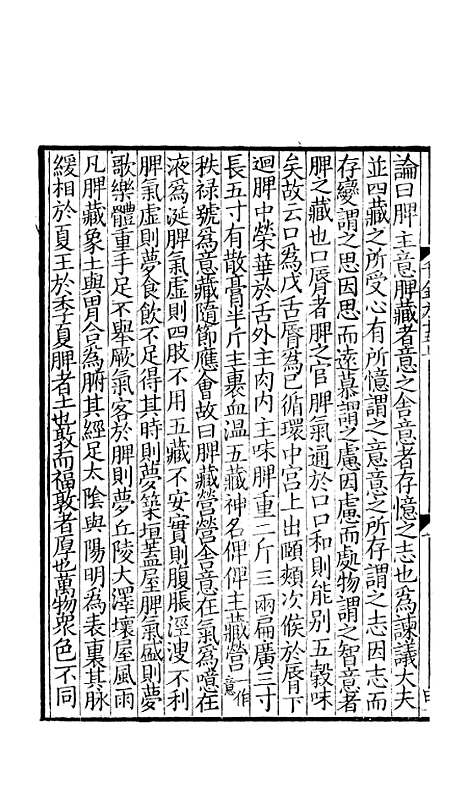 論曰脾主意脾藏者意之舍意者存憶之志也為諫議大夫
並四藏之所受心有所憶謂之意意之所存謂之志因志而
存變謂之思因思而遠慕謂之慮因慮而處物謂之智意者
脾之藏也口脣者脾之官脾氣通於口口和則能別五穀味
矣故云口為戊舌脣為己循環中宮上出頤頰次候於脣下
迴脾中榮華於舌外主肉內主味脾重二斤三兩扁廣三寸
長五寸有散膏半斤主裹血溫五藏神名俾俾主藏營一作意
秩祿號為意藏隨節應會故曰脾藏營營舍意在氣為噫在
液為涎脾氣虛則四肢不用五藏不安實則腹脹涇溲不利
脾氣虛則夢飲食不足得其時則夢築垣蓋屋脾氣盛則夢
歌樂體重手足不舉厥氣客於脾則夢丘陵大澤壞屋風雨
凡脾藏象土與胃合為腑其經足太陰與陽明為表裏其脉
緩相於夏王於季夏脾者土也敦而福敦者厚也萬物眾色不同